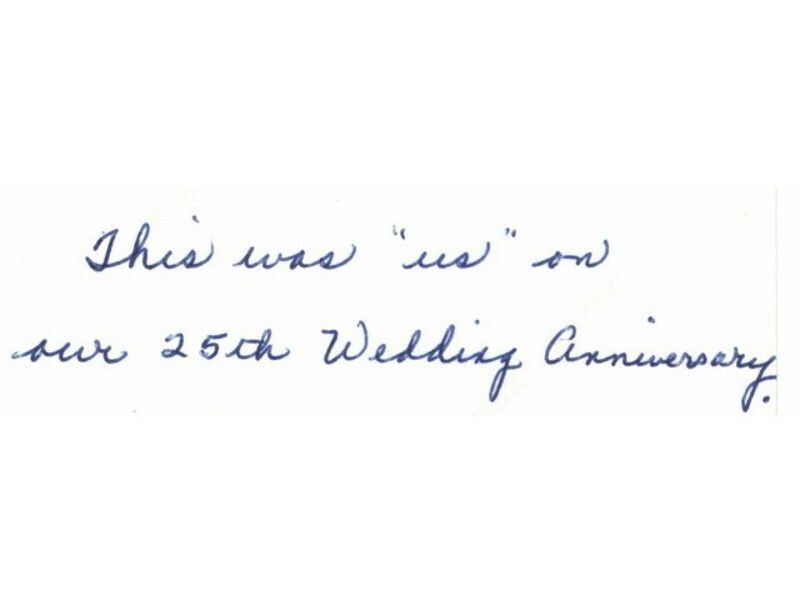 This was "us" on
our 25th Wedding Anniversary.